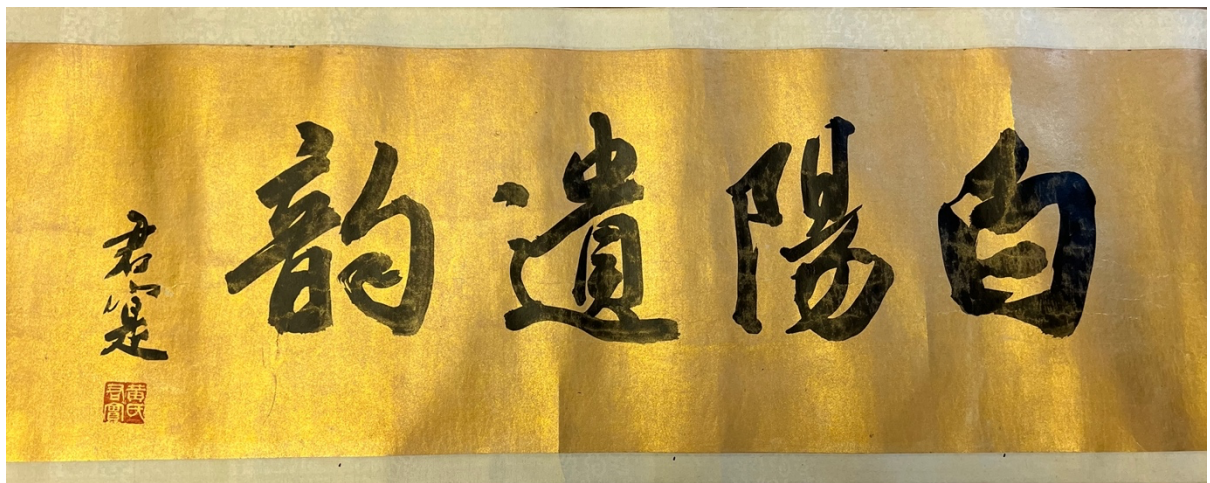 白陽遺韵
君寔
黃氏
君寔